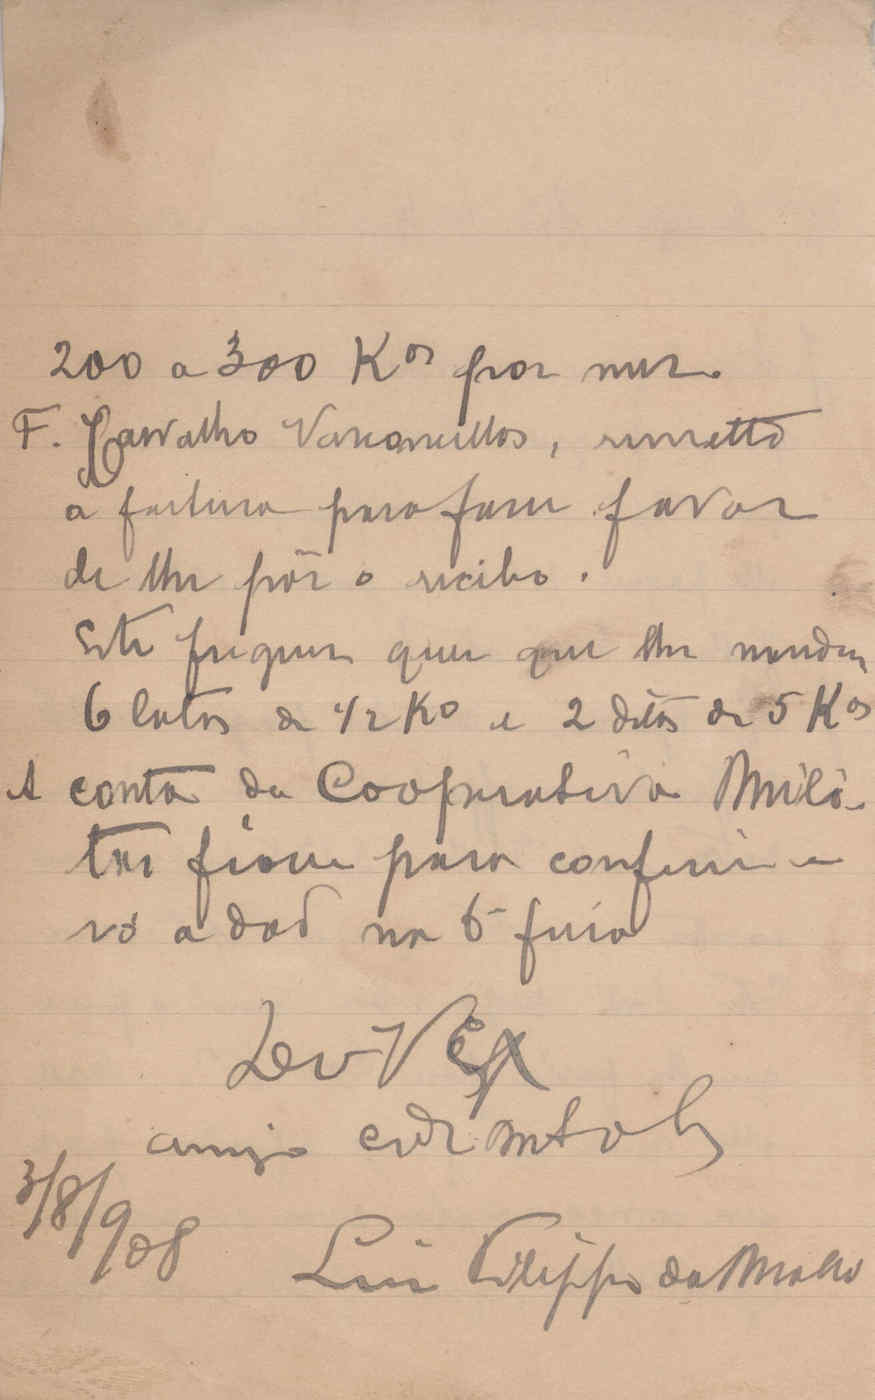 200 a 300 Kos por mez.
F. Carvalho Vasconcellos, remetto
a factura para fazer favor
de lhe pôr o recibo.
Este freguez quer que lhe mandem
6 latas de 1/2 Ko e 2 ditas de 5 Kos
A conta da Cooperativa Mili-
tar ficou para conferir e
só a dad na 6ª feira
De V Exa
amigo
3/8/908
Luiz Filippe da Matta